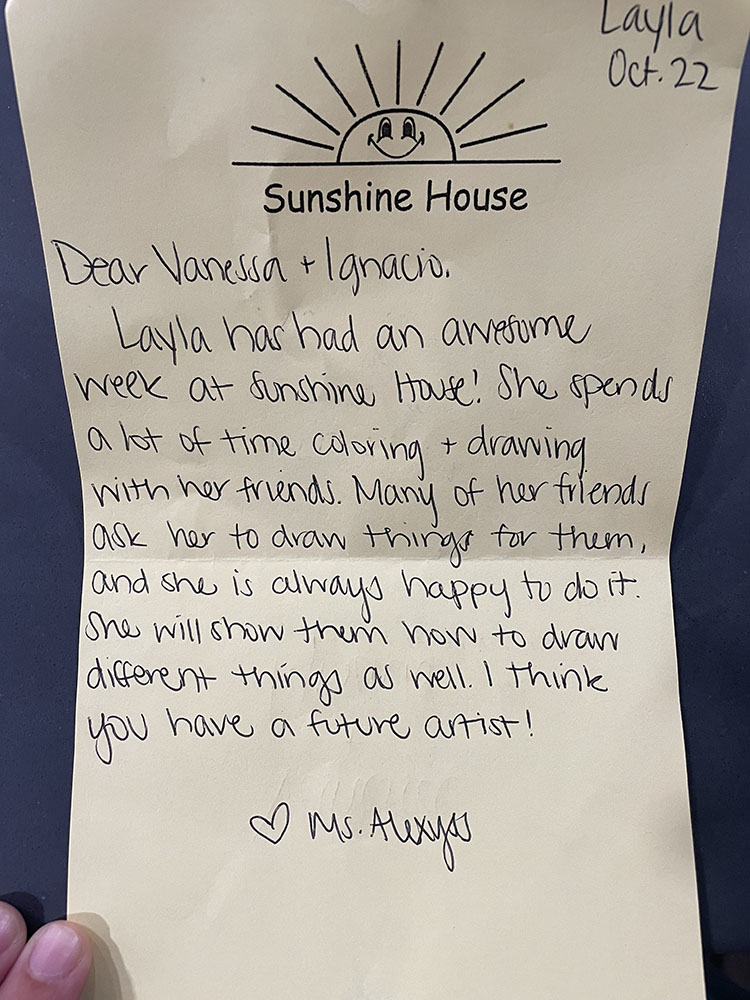 Layla
Oct. 22
Sunshine House
Dear Vanessa + Ignacio,
Layla has had an awesome
week at Sunshine House! She spends
a lot of time coloring + drawing
with her friends. Many of her friends
ask her to draw things for them,
and she is always happy to do it.
She will show them how to draw
different things as well. I think
you have a future artist!
♡ Ms. Alexyss